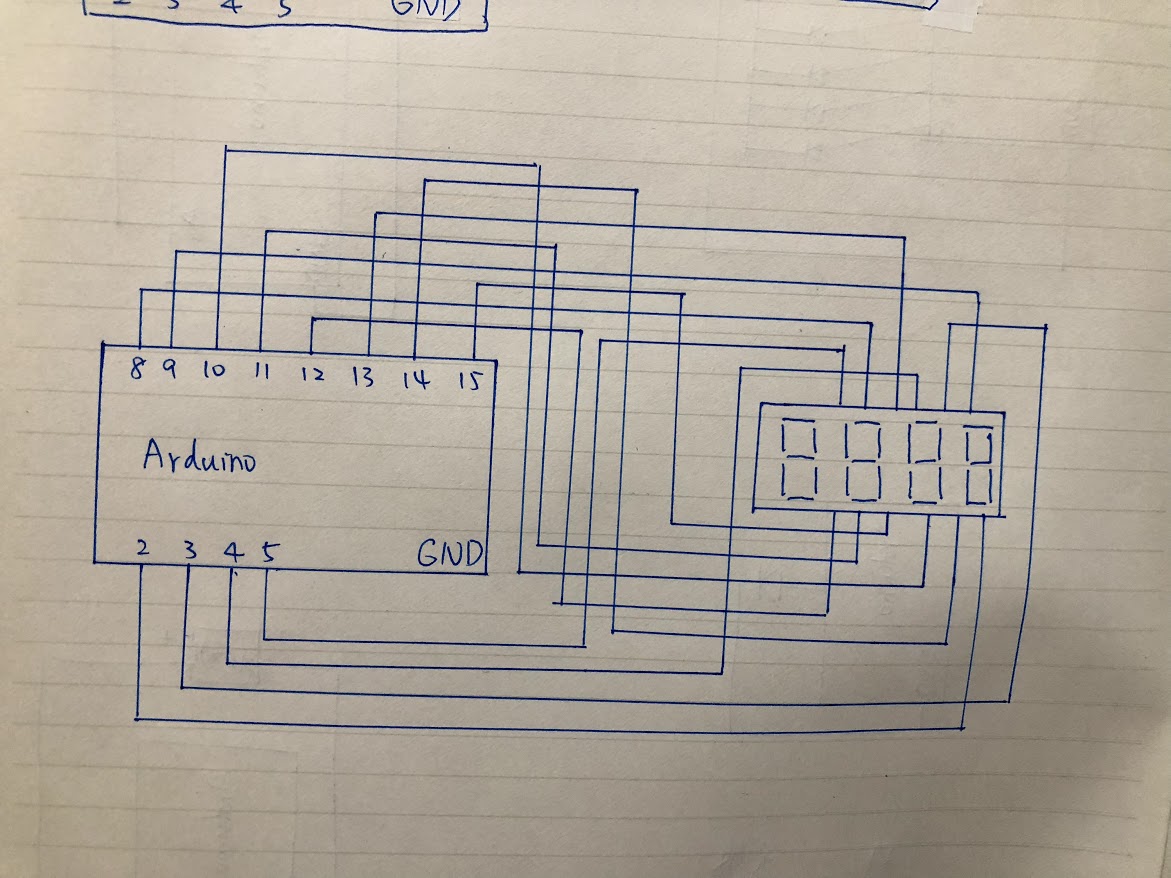 2 3 4 5 GND
8 9 10 11 12 13 14 15
Arduino
2 3 4 5 GND